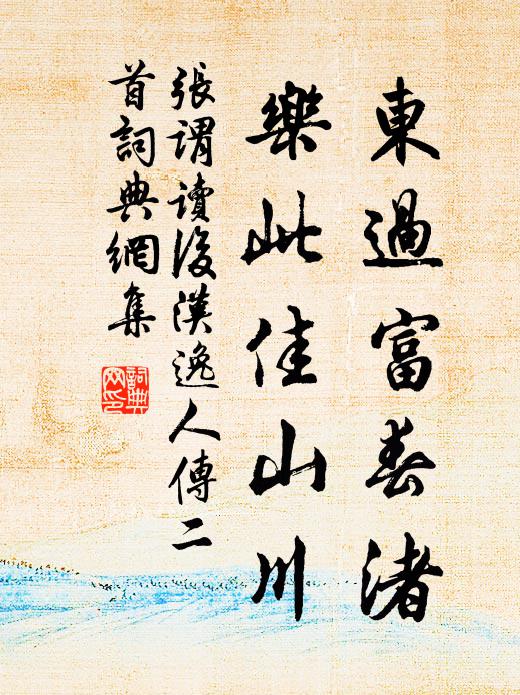 東過富春渚
樂此佳山川
張謂讀後漢逸人傳二
首詞典網集
詞典
网印